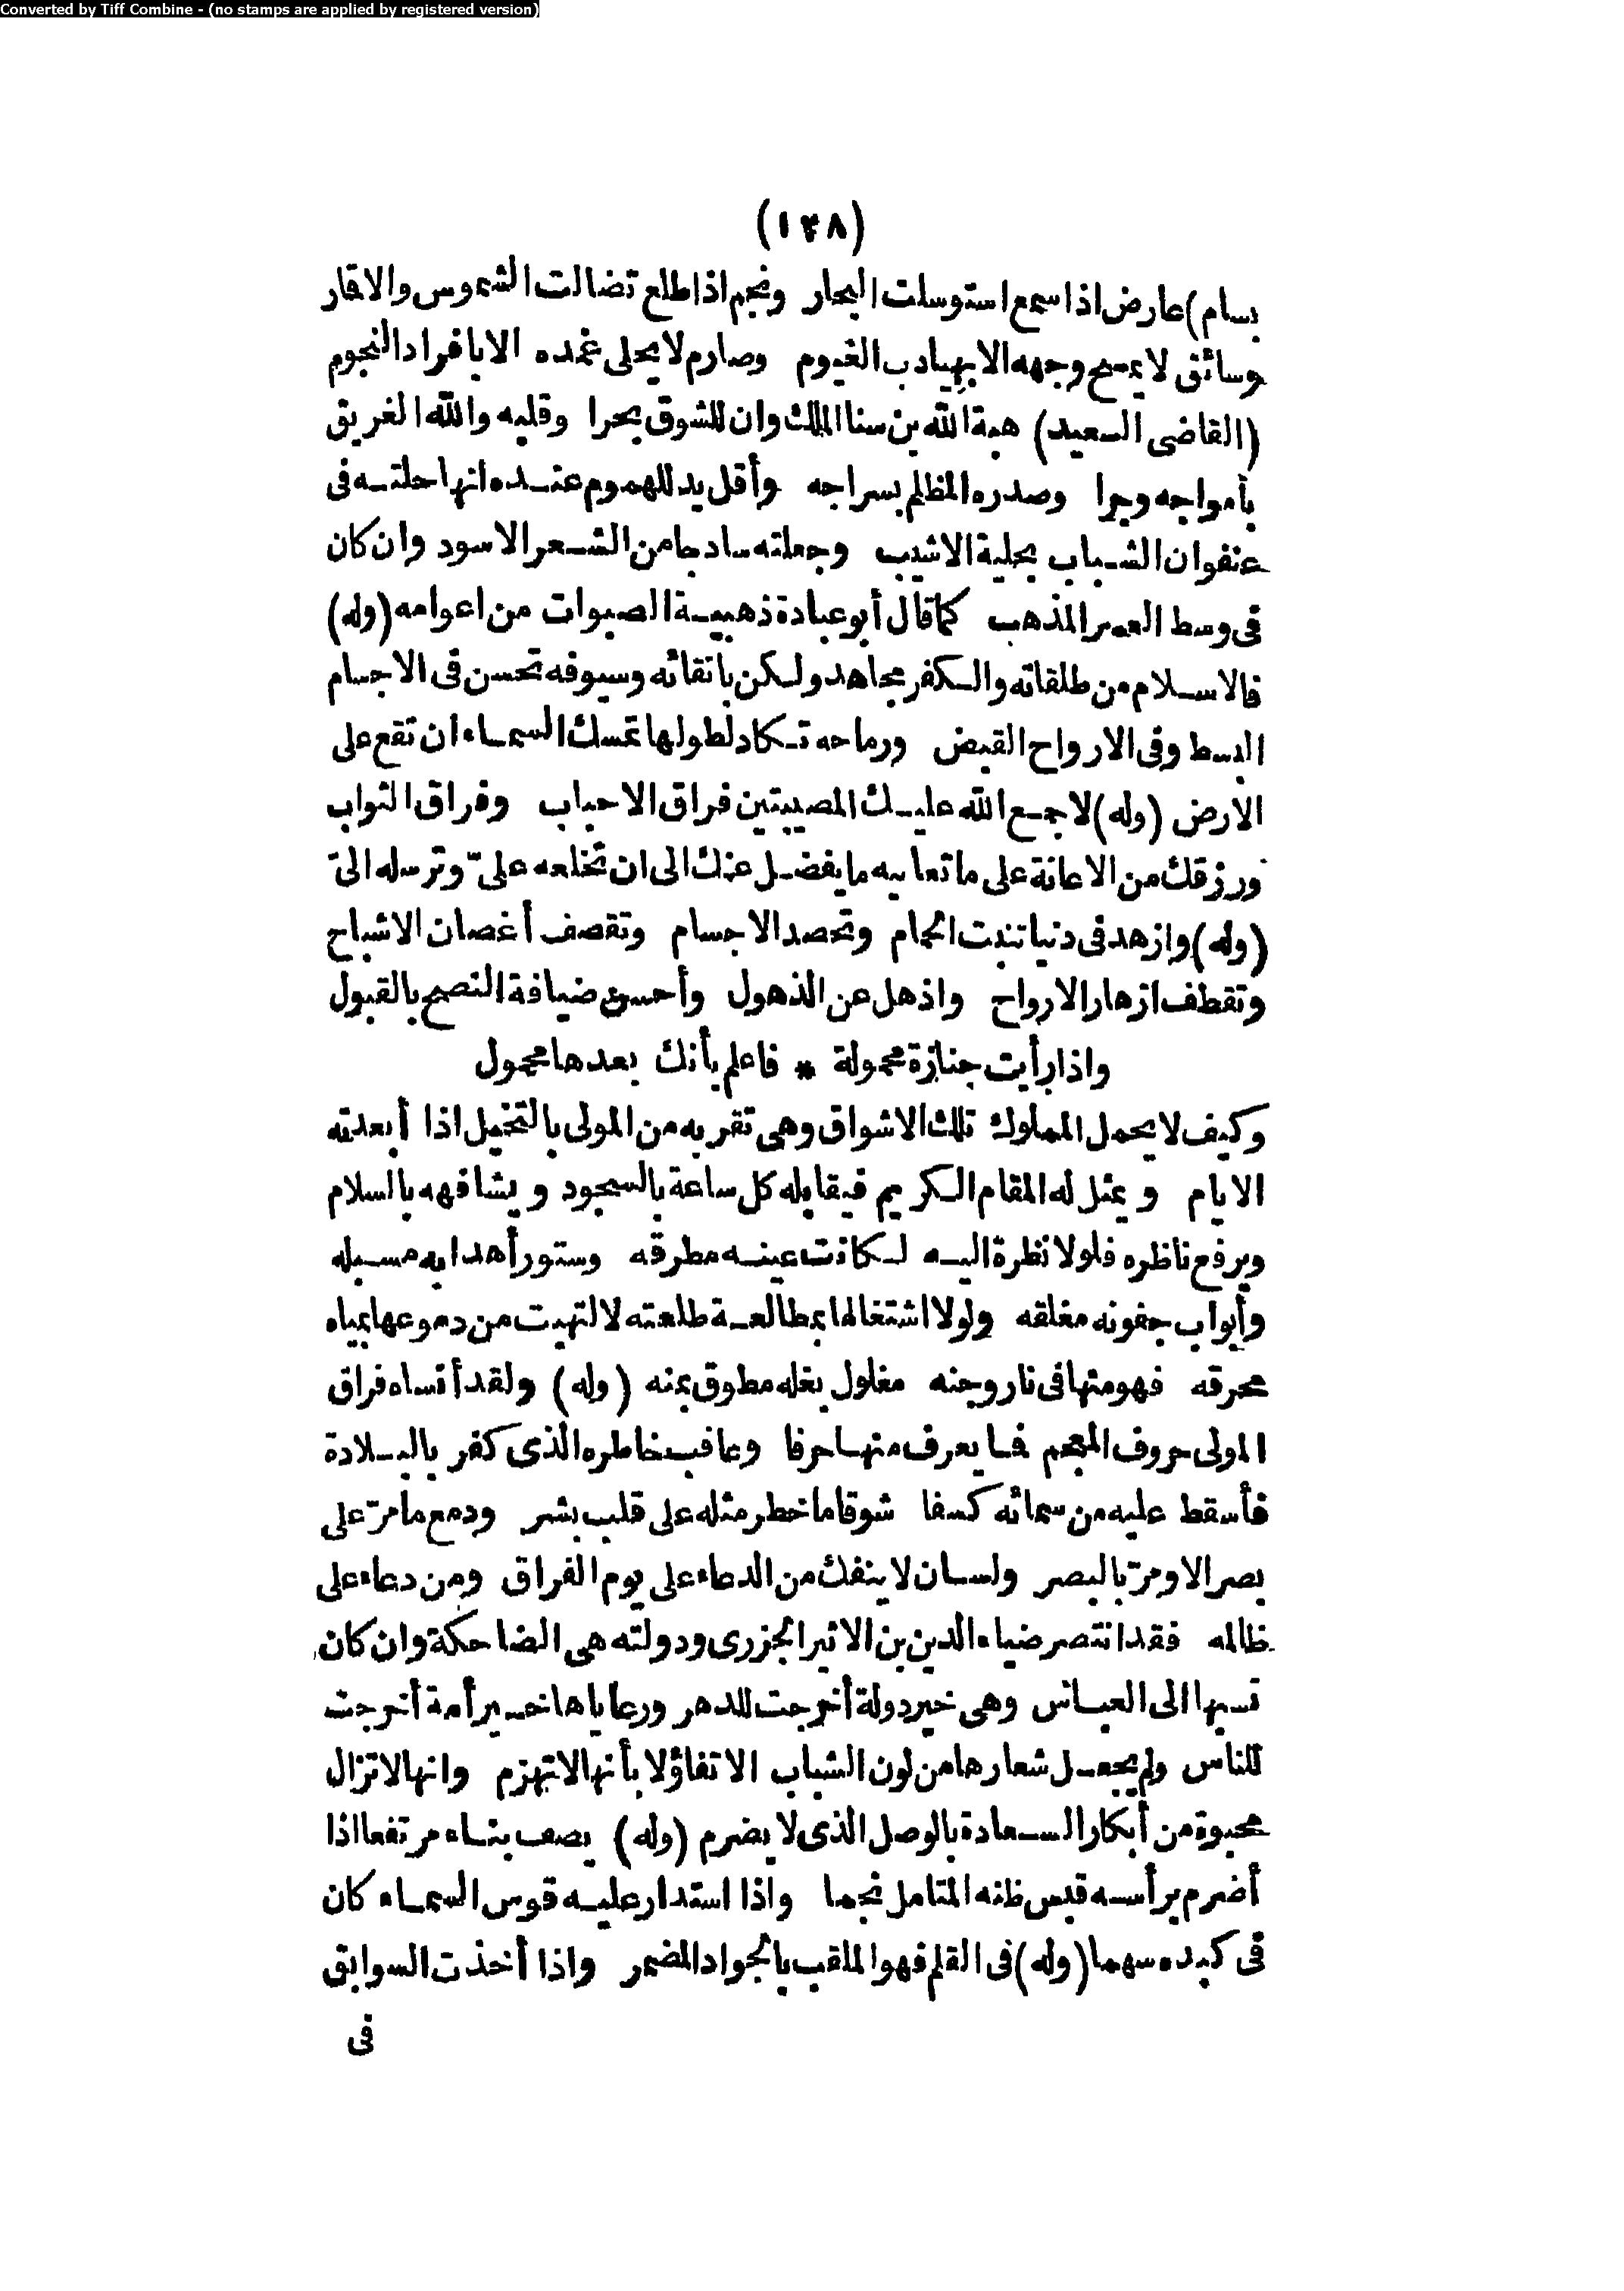 Converted by Tiff Combine - (no stamps are applied by registered version)
(١٢٨)
بسام) عارض اذا سمع استوسلت البحار ونجم اذا طلع تضالت الشموس والاقمار
وسائق لا يمسح وجهه الا بهيادب الغيوم وصارم لا يحلى غمده الا بافراد النجوم
(القاضى السعيد) هبة الله بن سنا الملك وان للشوق بحرا وقلبه والله الغريق
بأمواجه وجرا وصدره المظلم بسراجه وأقل يد للهموم عنده انها حلته فى
عنفوان الشباب بحلية الاشيب وجعلته ساذجا من الشعر الاسود وان كان
فى وسط العمر المذهب كما قال أبو عبادة ذهبية الصبوات من اعوامه (وله)
فالاسلام من طلقائه والكفر مجاهد ولكن باتقائه وسيوفه تحسن فى الاجسام
البسط وفى الارواح القبض ورماحه تكاد لطولها تمسك السماء ان تقع على
الارض (وله) لا جمع الله عليك المصيبتين فراق الاحباب وفراق الثواب
ورزقك من الاعانة على ما تعانيه ما يفضل عنك الى ان تخلعه علىّ وترسله الىّ
(وله) وازهد فى دنيا تنبت الحمام وتحصد الاجسام وتقصف أغصان الاشباح
وتقطف ازهار الارواح واذهل عن الذهول وأحسن ضيافة النصح بالقبول
واذا رأيت جنازة محمولة * فاعلم بأنك بعدها محمول
وكيف لا يحمل المملوك تلك الاشواق وهى تقربه من المولى بالتخيل اذا أبعدته
الايام ويمثل له المقام الكريم فيقابله كل ساعة بالسجود ويشافهه بالسلام
ويرفع ناظره فلولا نظرة اليه لكانت عينه مطرقه وستور أهدابه مسبله
وأبواب جفونه مغلقه ولولا اشتغالها بمطالعة طلعته لالتهبت من دموعها بمياه
محرقه فهو منها فى نار وجنه مغلول بغله مطوق بمنه (وله) ولقد أنساه فراق
المولى حروف المعجم فما يعرف منها حرفا وعاقب خاطره الذى كفر بالبلادة
فأسقط عليه من سمائه كسفا شوقا ما خطر مثله على قلب بشر ودمع ما مرّ على
بصر الا ومرّ بالبصر ولسان لا ينفك من الدعاء على يوم الفراق ومن دعاء على
ظالمه فقد انتصر ضياء الدين بن الاثير الجزرى ودولته هى الضاحكة وان كان
نسبها الى العباس وهى خير دولة أخرجت للدهر ورعاياها خير أمة أخرجت
للناس ولم يجعل شعارها من لون الشباب الا تفاؤلا بأنها لا تهرم وانها لا تزال
محبوة من أبكار السعادة بالوصل الذى لا يضرم (وله) يصف بناء مرتفعا اذا
أضرم برأسه قبس ظنه المتامل نجما واذا استدار عليه قوس السماء كان
فى كبده سهما (وله) فى القلم فهو الملقب بالجواد المضمر واذا أخذت السوابق
فى